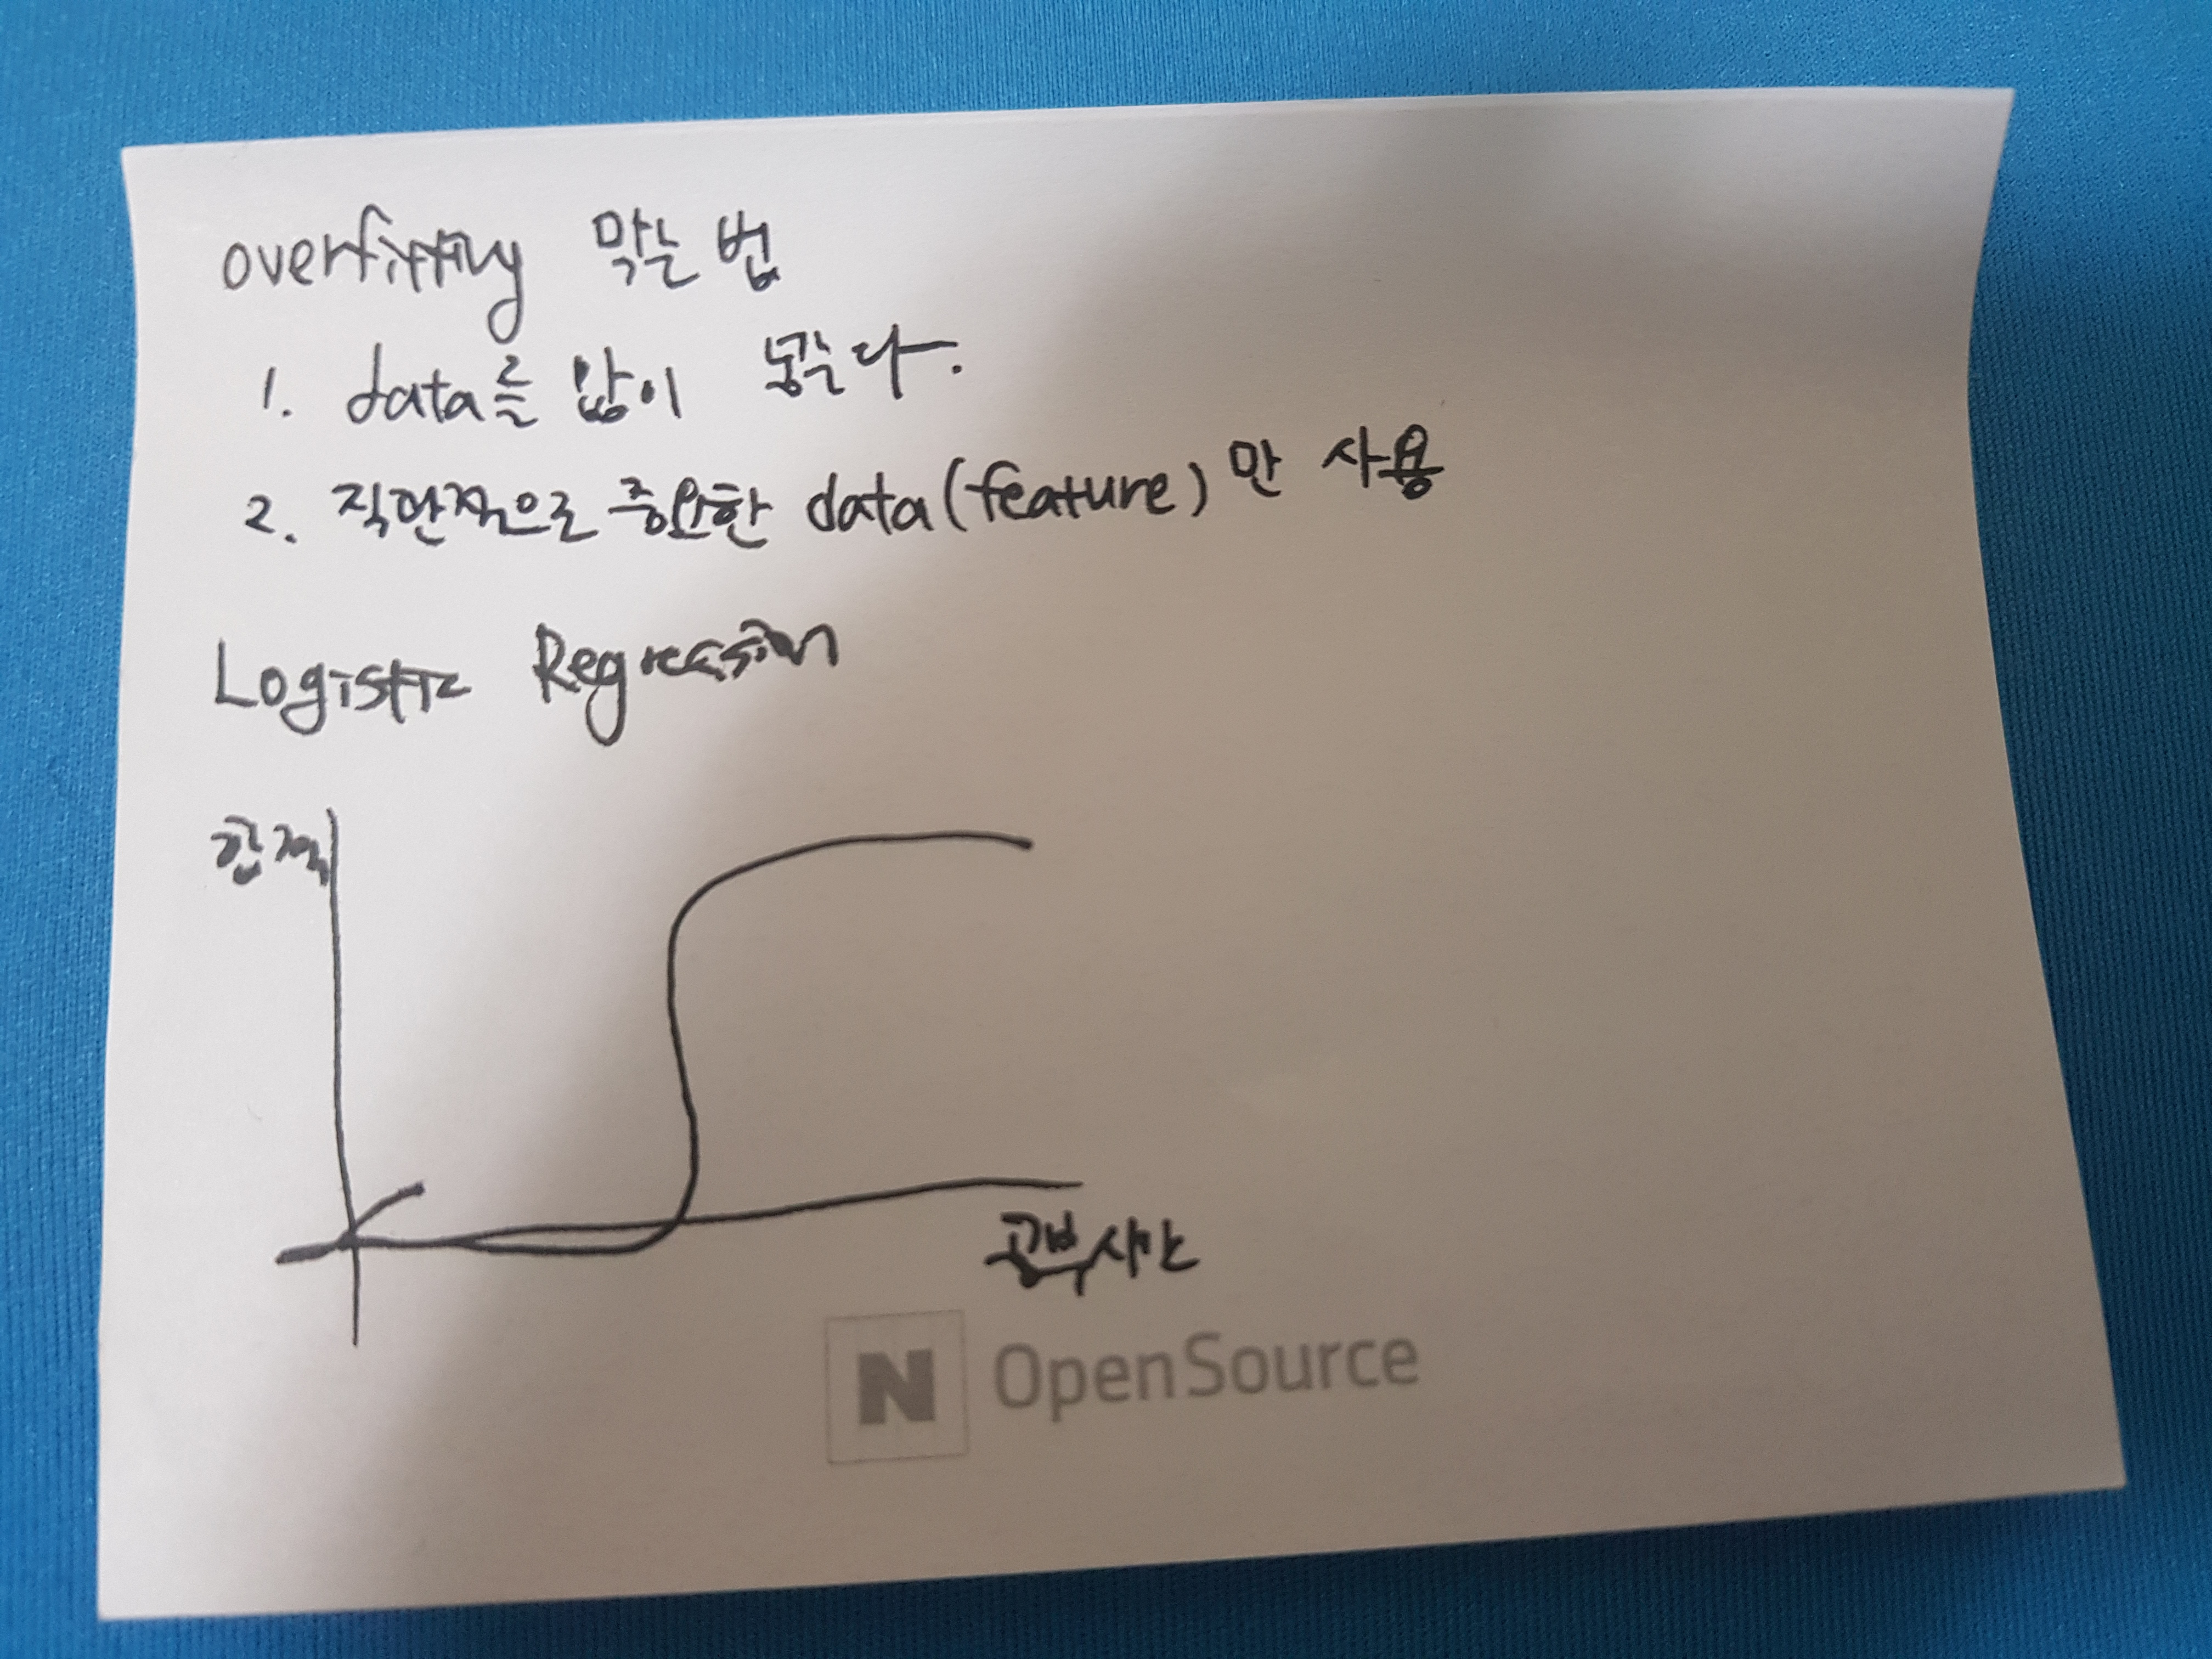 overfitting 막는 법
1. data를 많이 넣는다.
2. 직관적으로 중요한 data(feature)만 사용
Logistic Regression
학점
공부시간
N OpenSource